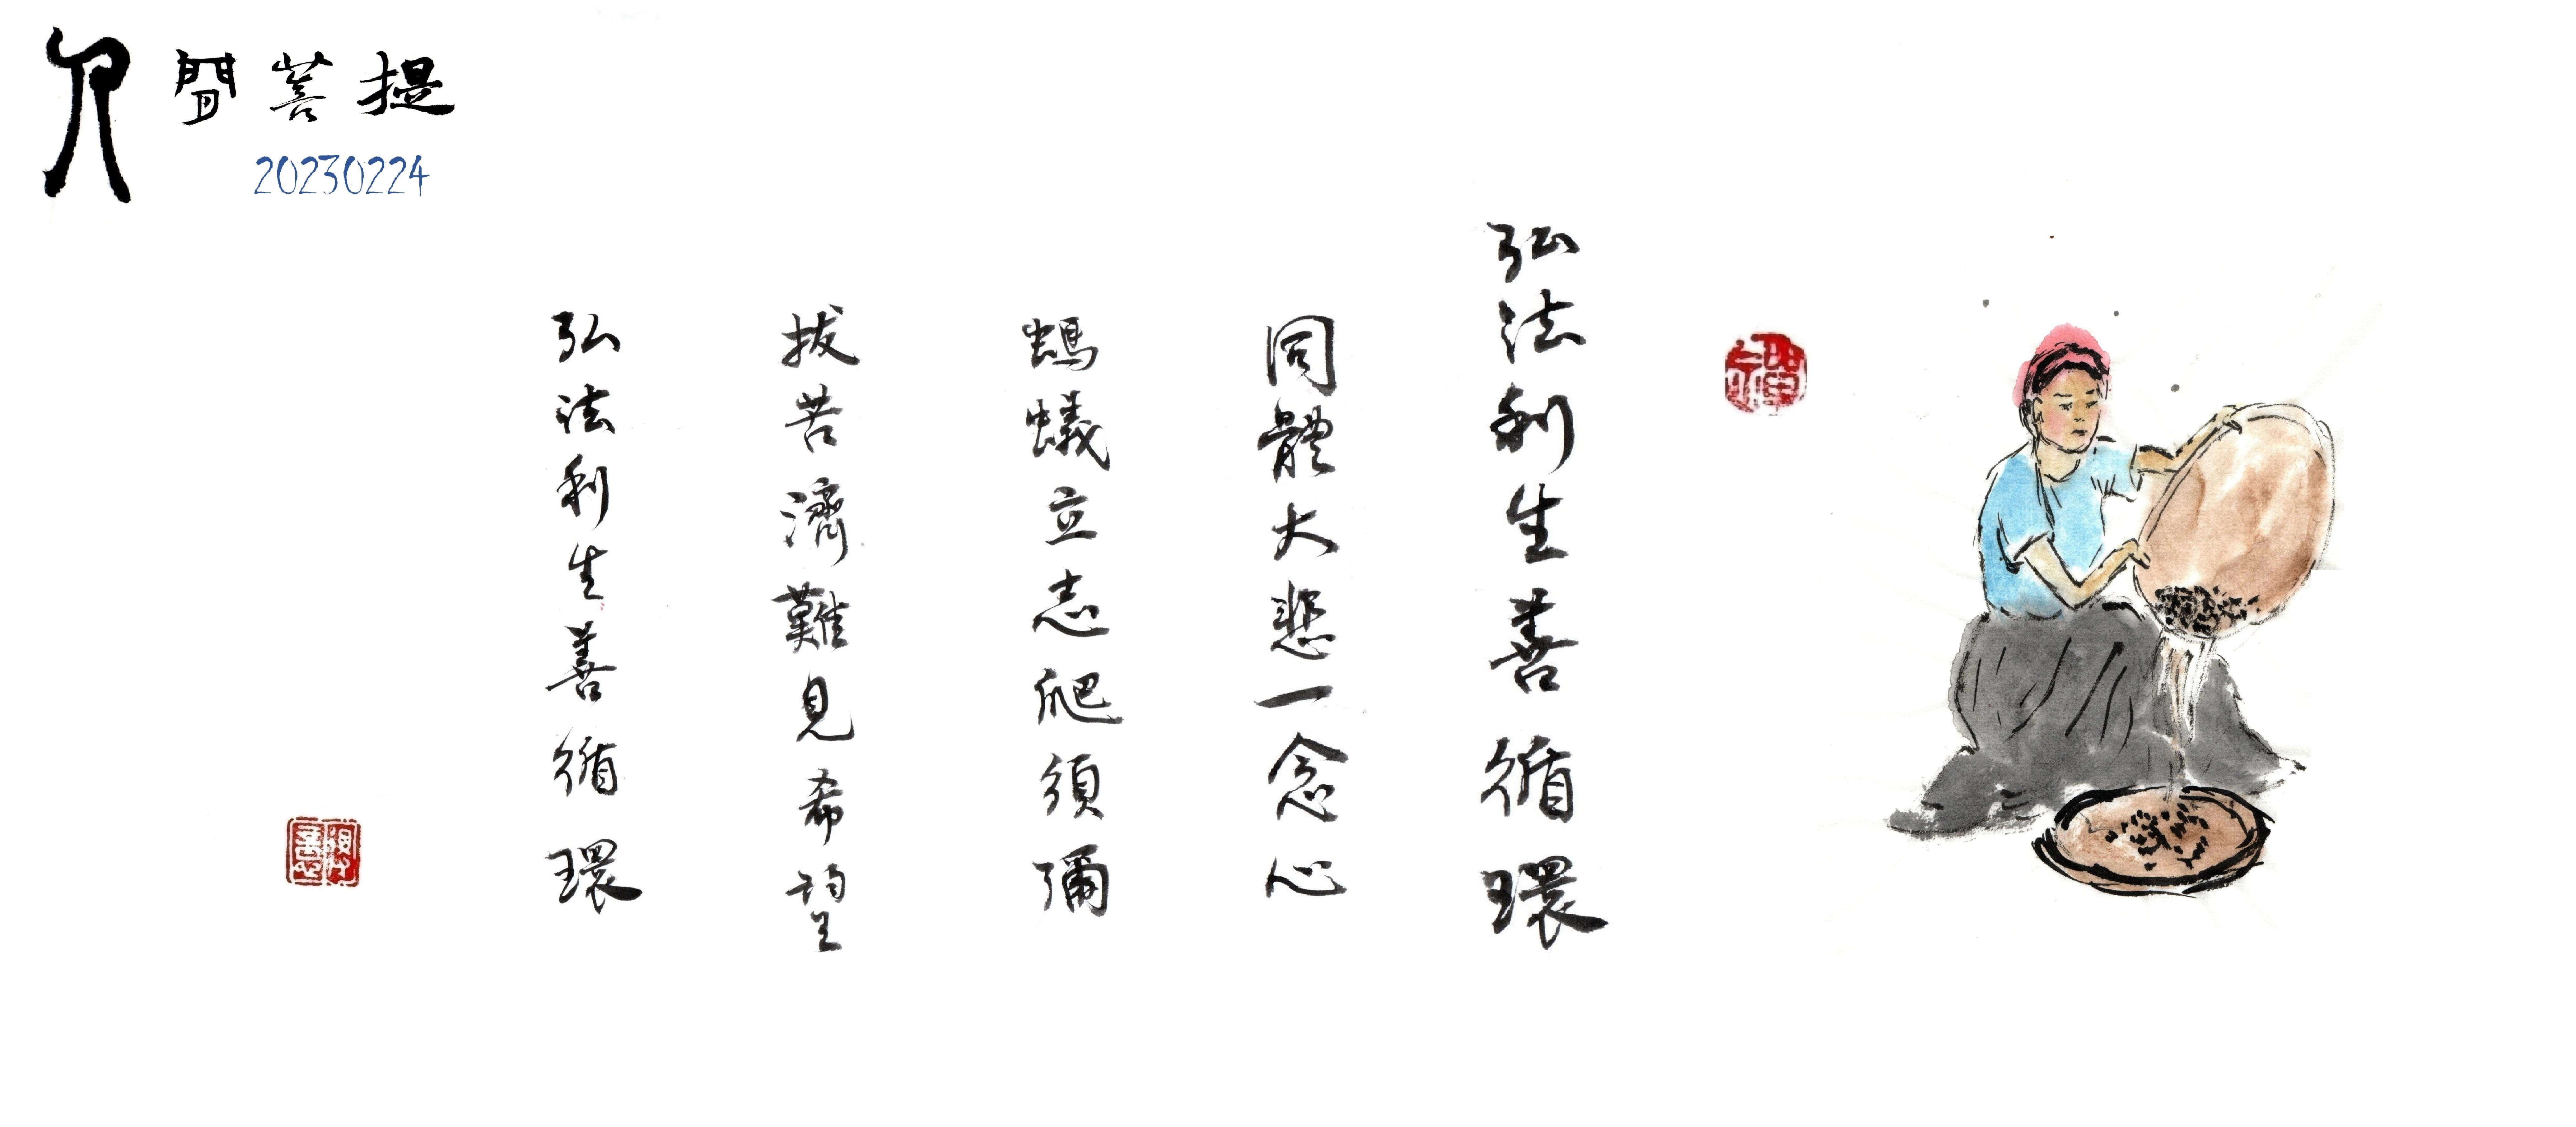 人間菩提
20230224
弘法利生善循環
同體大悲一念心
螞蟻立志爬須彌
拔苦濟難見希望
弘法利生善循環
禪